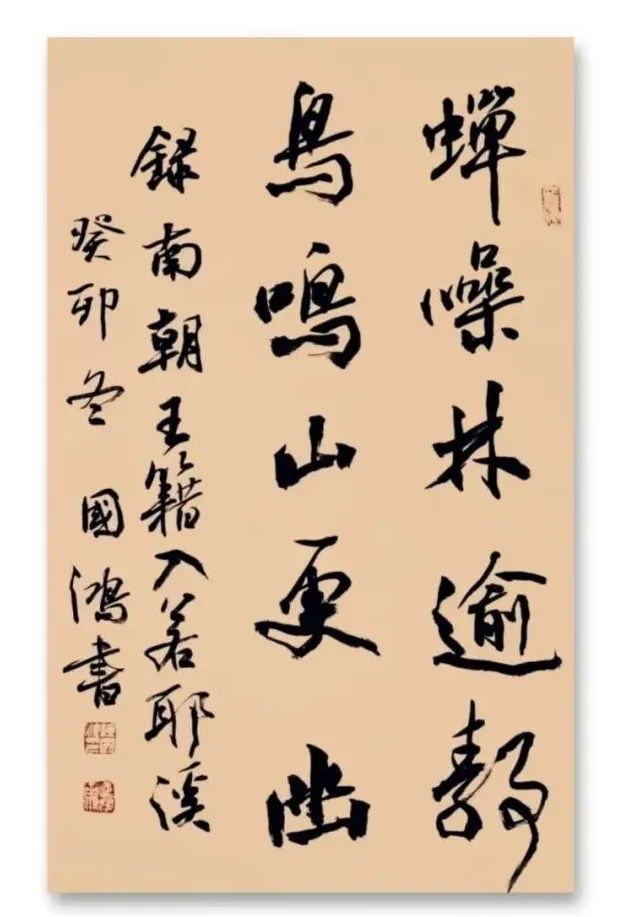 蟬噪林逾静
鳥鳴山更幽
録南朝王籍入若耶溪
癸卯冬國鴻書